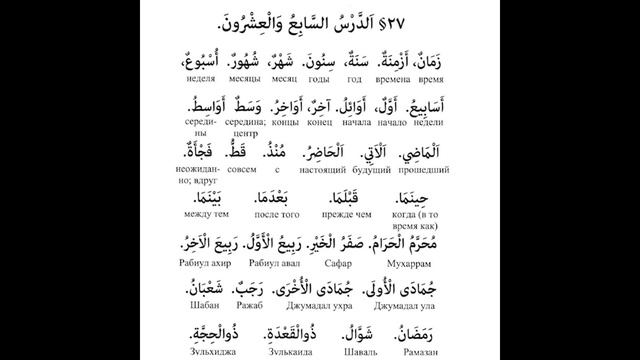 §٢٧ اَلدَّرْسُ السَّابِعُ وَالْعِشْرُونَ.
زَمَانٌ، أَزْمِنَةٌ. سَنَةٌ، سِنُونَ. شَهْرٌ، شُهُورٌ. أُسْبُوعٌ،
неделя месяцы месяц годы год времена время
أَسَابِيعُ. أَوَّلٌ، أَوَائِلُ. آخِرٌ، أَوَاخِرُ. وَسَطٌ أَوَاسِطُ.
середи- середина; концы конец начала начало недели
ны центр
اَلْمَاضِي. اَلْآتِي. اَلْحَاضِرُ. مُنْذُ. قَطُّ. فَجْأَةٌ.
неожидан- совсем с настоящий будущий прошедший
но; вдруг
حِينَمَا. قَبْلَمَا. بَعْدَمَا. بَيْنَمَا.
между тем после того прежде чем когда (в то
время как)
مُحَرَّمُ الْحَرَامُ. صَفَرُ الْخَيْرِ. رَبِيعُ الْأَوَّلُ. رَبِيعَ الْاَخِرُ.
Рабиул ахир Рабиул авал Сафар Мухаррам
جُمَادَى الْأُولَى. جُمَادَى الْأُخْرَى. رَجَبٌ. شَعْبَانُ.
Шабан Ражаб Джумадал ухра Джумадал ула
رَمَضَانُ. شَوَّالُ. ذُوالْقَعْدَةِ. ذُوالْحِجَّةِ.
Зульхиджа Зулькаида Шаваль Рамазан